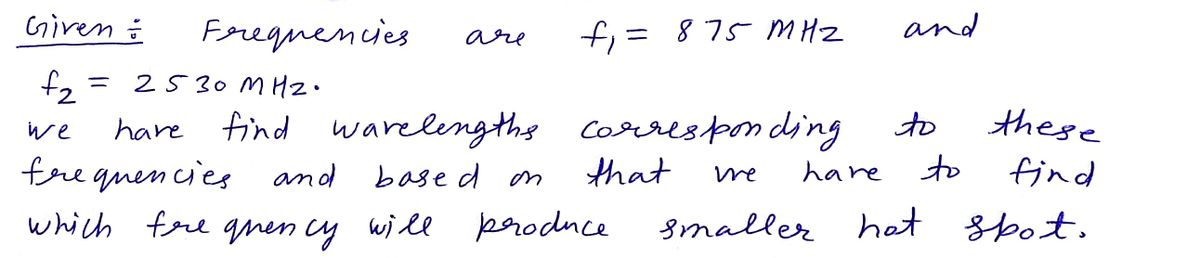 Given : Frequencies are f₁ = 875 MHz and
f₂ = 2530 MHz.
we have find wavelengths corresponding to these
frequencies and based on that we have to find
which frequency will produce smaller hot spot.